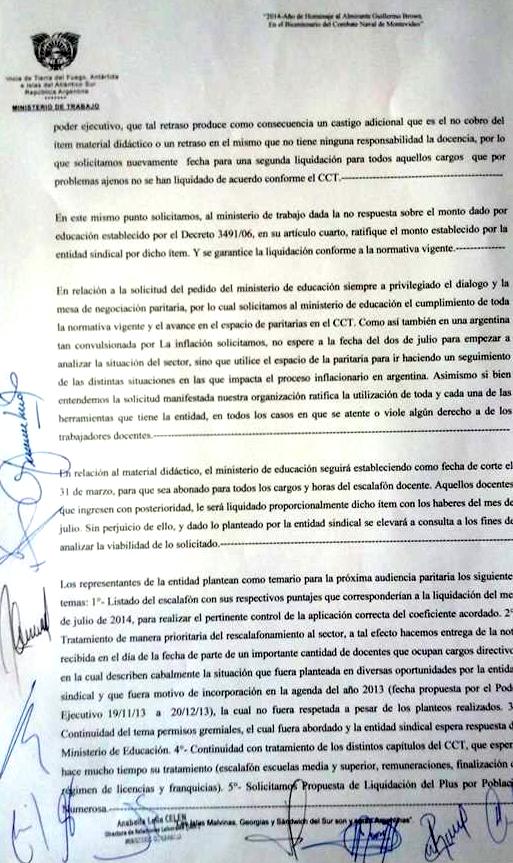 "2014-Año de Homenaje al Almirante Guillermo Brown,
En el Bicentenario del Combate Naval de Montevideo"
incia de Tierra del Fuego, Antártida
e Islas del Atlántico Sur
República Argentina
MINISTERIO DE TRABAJO
poder ejecutivo, que tal retraso produce como consecuencia un castigo adicional que es el no cobro del
ítem material didáctico o un retraso en el mismo que no tiene ninguna responsabilidad la docencia, por lo
que solicitamos nuevamente fecha para una segunda liquidación para todos aquellos cargos que por
problemas ajenos no se han liquidado de acuerdo conforme el CCT.-
En este mismo punto solicitamos, al ministerio de trabajo dada la no respuesta sobre el monto dado por
educación establecido por el Decreto 3491/06, en su artículo cuarto, ratifique el monto establecido por la
entidad sindical por dicho ítem. Y se garantice la liquidación conforme a la normativa vigente.-
En relación a la solicitud del pedido del ministerio de educación siempre a privilegiado el dialogo y la
mesa de negociación paritaria, por lo cual solicitamos al ministerio de educación el cumplimiento de toda
la normativa vigente y el avance en el espacio de paritarias en el CCT. Como así también en una argentina
tan convulsionada por La inflación solicitamos, no espere a la fecha del dos de julio para empezar a
analizar la situación del sector, sino que utilice el espacio de la paritaria para ir haciendo un seguimiento
de las distintas situaciones en las que impacta el proceso inflacionario en argentina. Asimismo si bien
entendemos la solicitud manifestada nuestra organización ratifica la utilización de toda y cada una de las
herramientas que tiene la entidad, en todos los casos en que se atente o viole algún derecho a de los
trabajadores docentes.-
En relación al material didáctico, el ministerio de educación seguirá estableciendo como fecha de corte el
31 de marzo, para que sea abonado para todos los cargos y horas del escalafón docente. Aquellos docentes
que ingresen con posterioridad, le será liquidado proporcionalmente dicho ítem con los haberes del mes de
julio. Sin perjuicio de ello, y dado lo planteado por la entidad sindical se elevará a consulta a los fines de
analizar la viabilidad de lo solicitado.-
Los representantes de la entidad plantean como temario para la próxima audiencia paritaria los siguiente
temas: 1°- Listado del escalafón con sus respectivos puntajes que corresponderían a la liquidación del me
de julio de 2014, para realizar el pertinente control de la aplicación correcta del coeficiente acordado. 2°
Tratamiento de manera prioritaria del rescalafonamiento al sector, a tal efecto hacemos entrega de la not
recibida en el día de la fecha de parte de un importante cantidad de docentes que ocupan cargos directivo
en la cual describen cabalmente la situación que fuera planteada en diversas oportunidades por la entida
sindical y que fuera motivo de incorporación en la agenda del año 2013 (fecha propuesta por el Pod
Ejecutivo 19/11/13 a 20/12/13), la cual no fuera respetada a pesar de los planteos realizados. 3
Continuidad del tema permisos gremiales, el cual fuera abordado y la entidad sindical espera respuesta d
Ministerio de Educación. 4°- Continuidad con tratamiento de los distintos capítulos del CCT, que esper
hace mucho tiempo su tratamiento (escalafón escuelas media y superior, remuneraciones, finalización d
régimen de licencias y franquicias). 5°- Solicitamos Propuesta de Liquidación del Plus por Poblac
Numerosa.-
"Las Islas Malvinas, Georgias y Sándwich del Sur son y serán Argentinas"